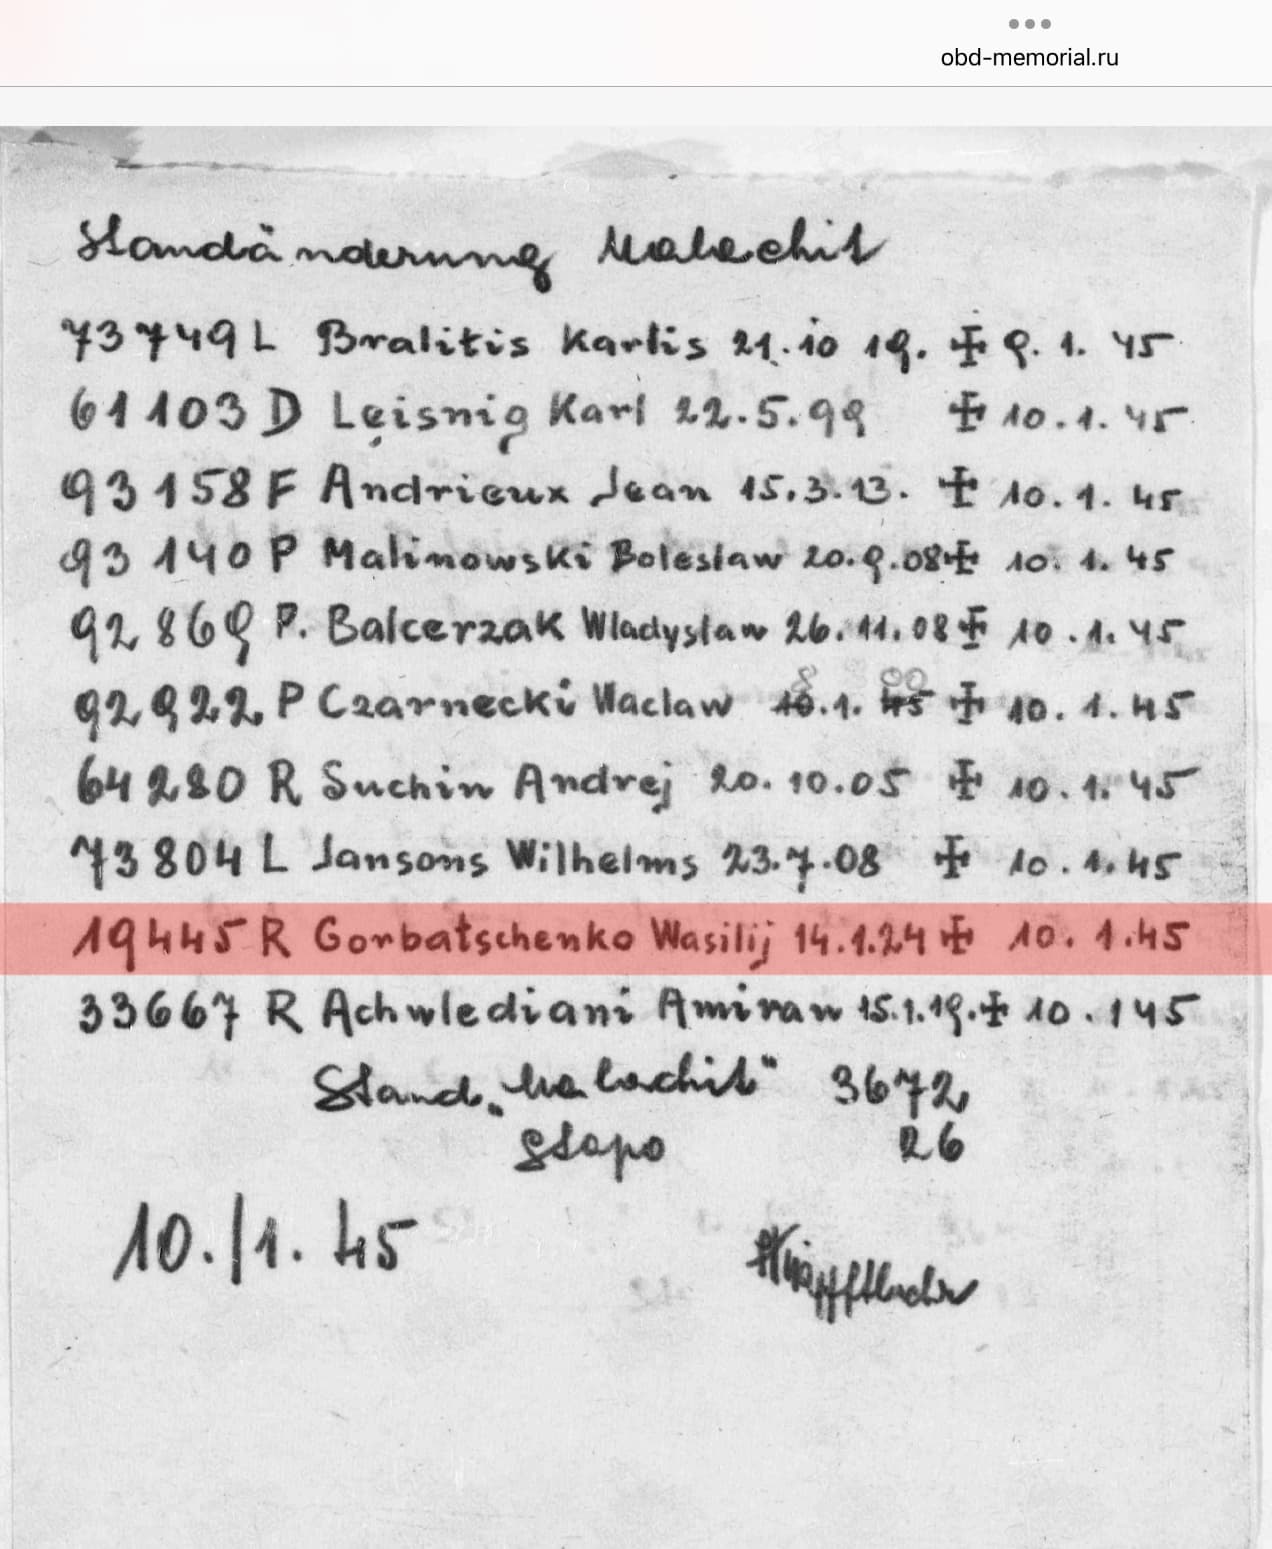 obd-memorial.ru
Standänderung Malachit
73749 L Bralitis Karlis 21.10 19. ✠ 9. 1. 45
61103 D Leisnig Karl 22.5.99 ✠ 10.1.45
93158 F Andrieux Jean 15.3.13. ✠ 10.1.45
93140 P Malinowski Boleslaw 20.9.08 ✠ 10.1.45
92869 P. Balcerzak Wladyslaw 26.11.08 ✠ 10.1.45
8 00
92922 P Czarnecki Waclaw 10.1.45 ✠ 10.1.45
64280 R Suchin Andrej 20.10.05 ✠ 10.1.45
73804 L Jansons Wilhelms 23.7.08 ✠ 10.1.45
19445 R Gorbatschenko Wasilij 14.1.24 ✠ 10.1.45
33667 R Achwlediani Amiran 15.1.19. ✠ 10.145
Stand „Malachit" 3672
Stapo 26
10./1. 45